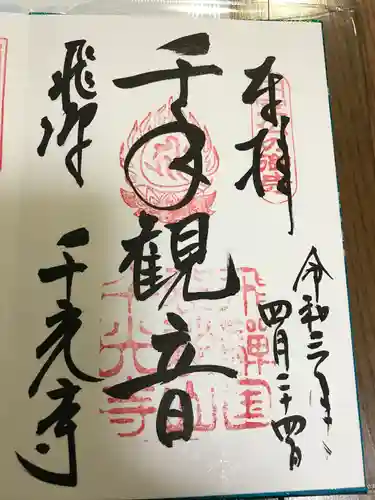 奉拝
令和三年
四月二十四日
千手観音
飛騨
千光寺
千光寺